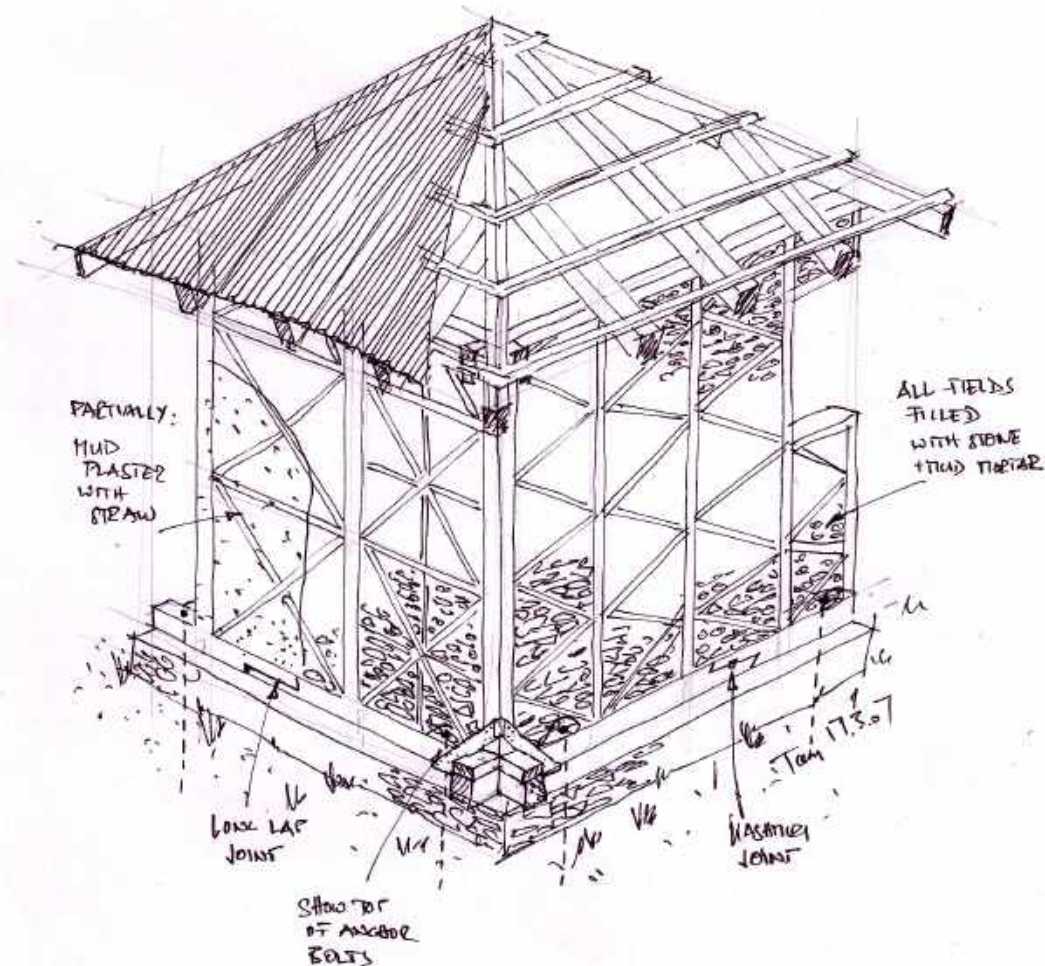 PARTIALLY:
MUD
PLASTER
WITH
STRAW
ALL FIELDS
FILLED
WITH STONE
+MUD MORTAR
LONG LAP
JOINT
SHOW TOP
OF ANCHOR
BOLTS
JOINT
Tom 17.3.07